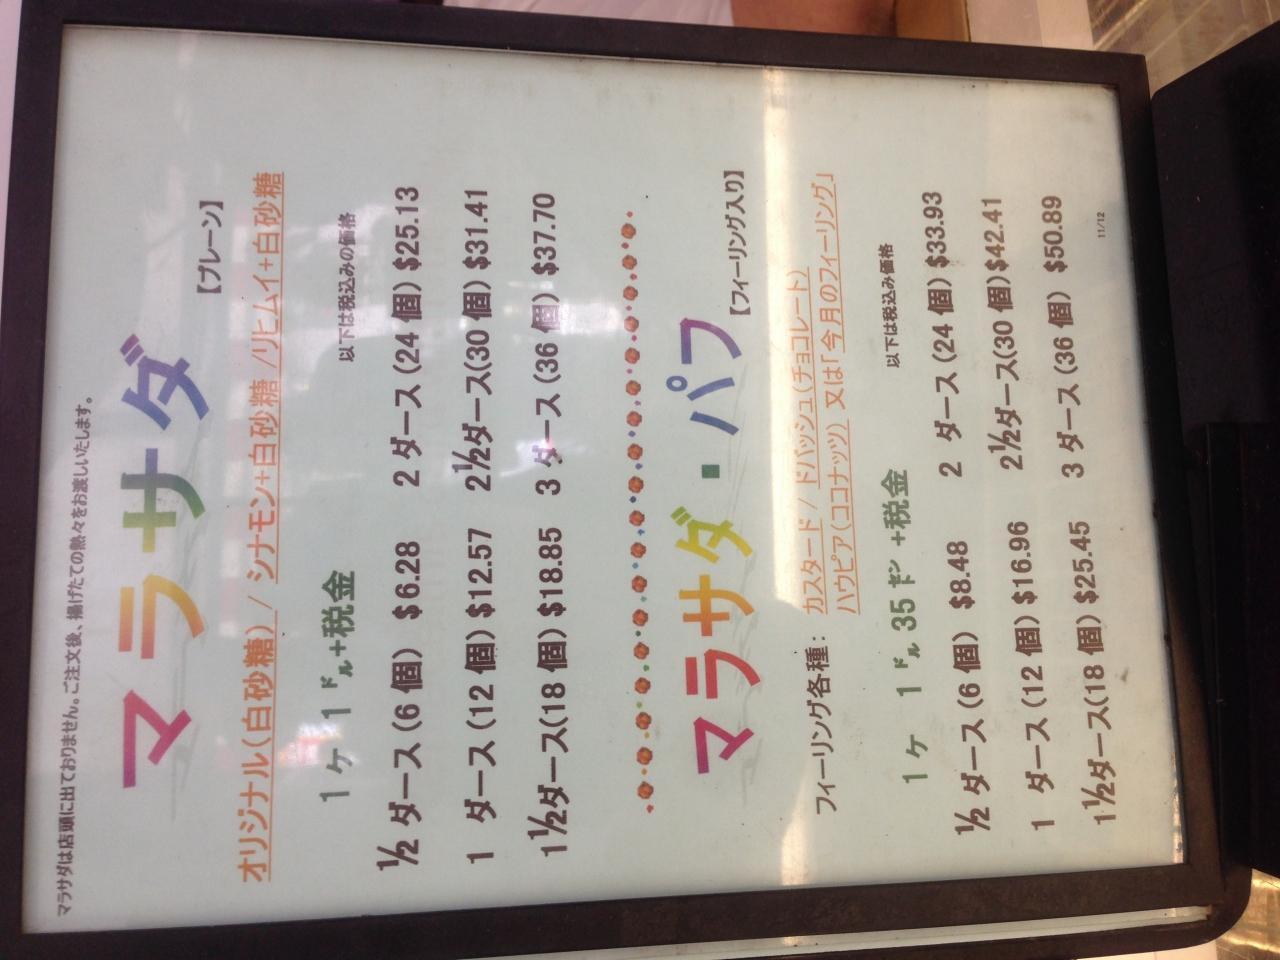 マラサダは店頭に出ておりません。ご注文後、揚げたての熱々をお渡しいたします。
マラサダ
【プレーン】
オリジナル(白砂糖) / シナモン+白砂糖 /リヒムイ+白砂糖
1ヶ 1㌦+税金
以下は税込みの価格
½ ダース (6 個) $6.28 2 ダース (24 個) $25.13
1 ダース (12 個) $12.57 2½ダース(30 個) $31.41
1½ダース(18 個) $18.85 3 ダース (36 個) $37.70
マラサダ・パフ
【フィーリング入り】
フィーリング各種: カスタード / ドバッシュ(チョコレート)
ハウピア(ココナッツ) 又は「今月のフィーリング」
1ヶ 1㌦35㌣+税金
以下は税込み価格
½ ダース (6 個) $8.48 2 ダース (24 個) $33.93
1 ダース (12 個) $16.96 2½ダース(30 個)$42.41
1½ダース(18 個) $25.45 3 ダース (36 個) $50.89
11/12